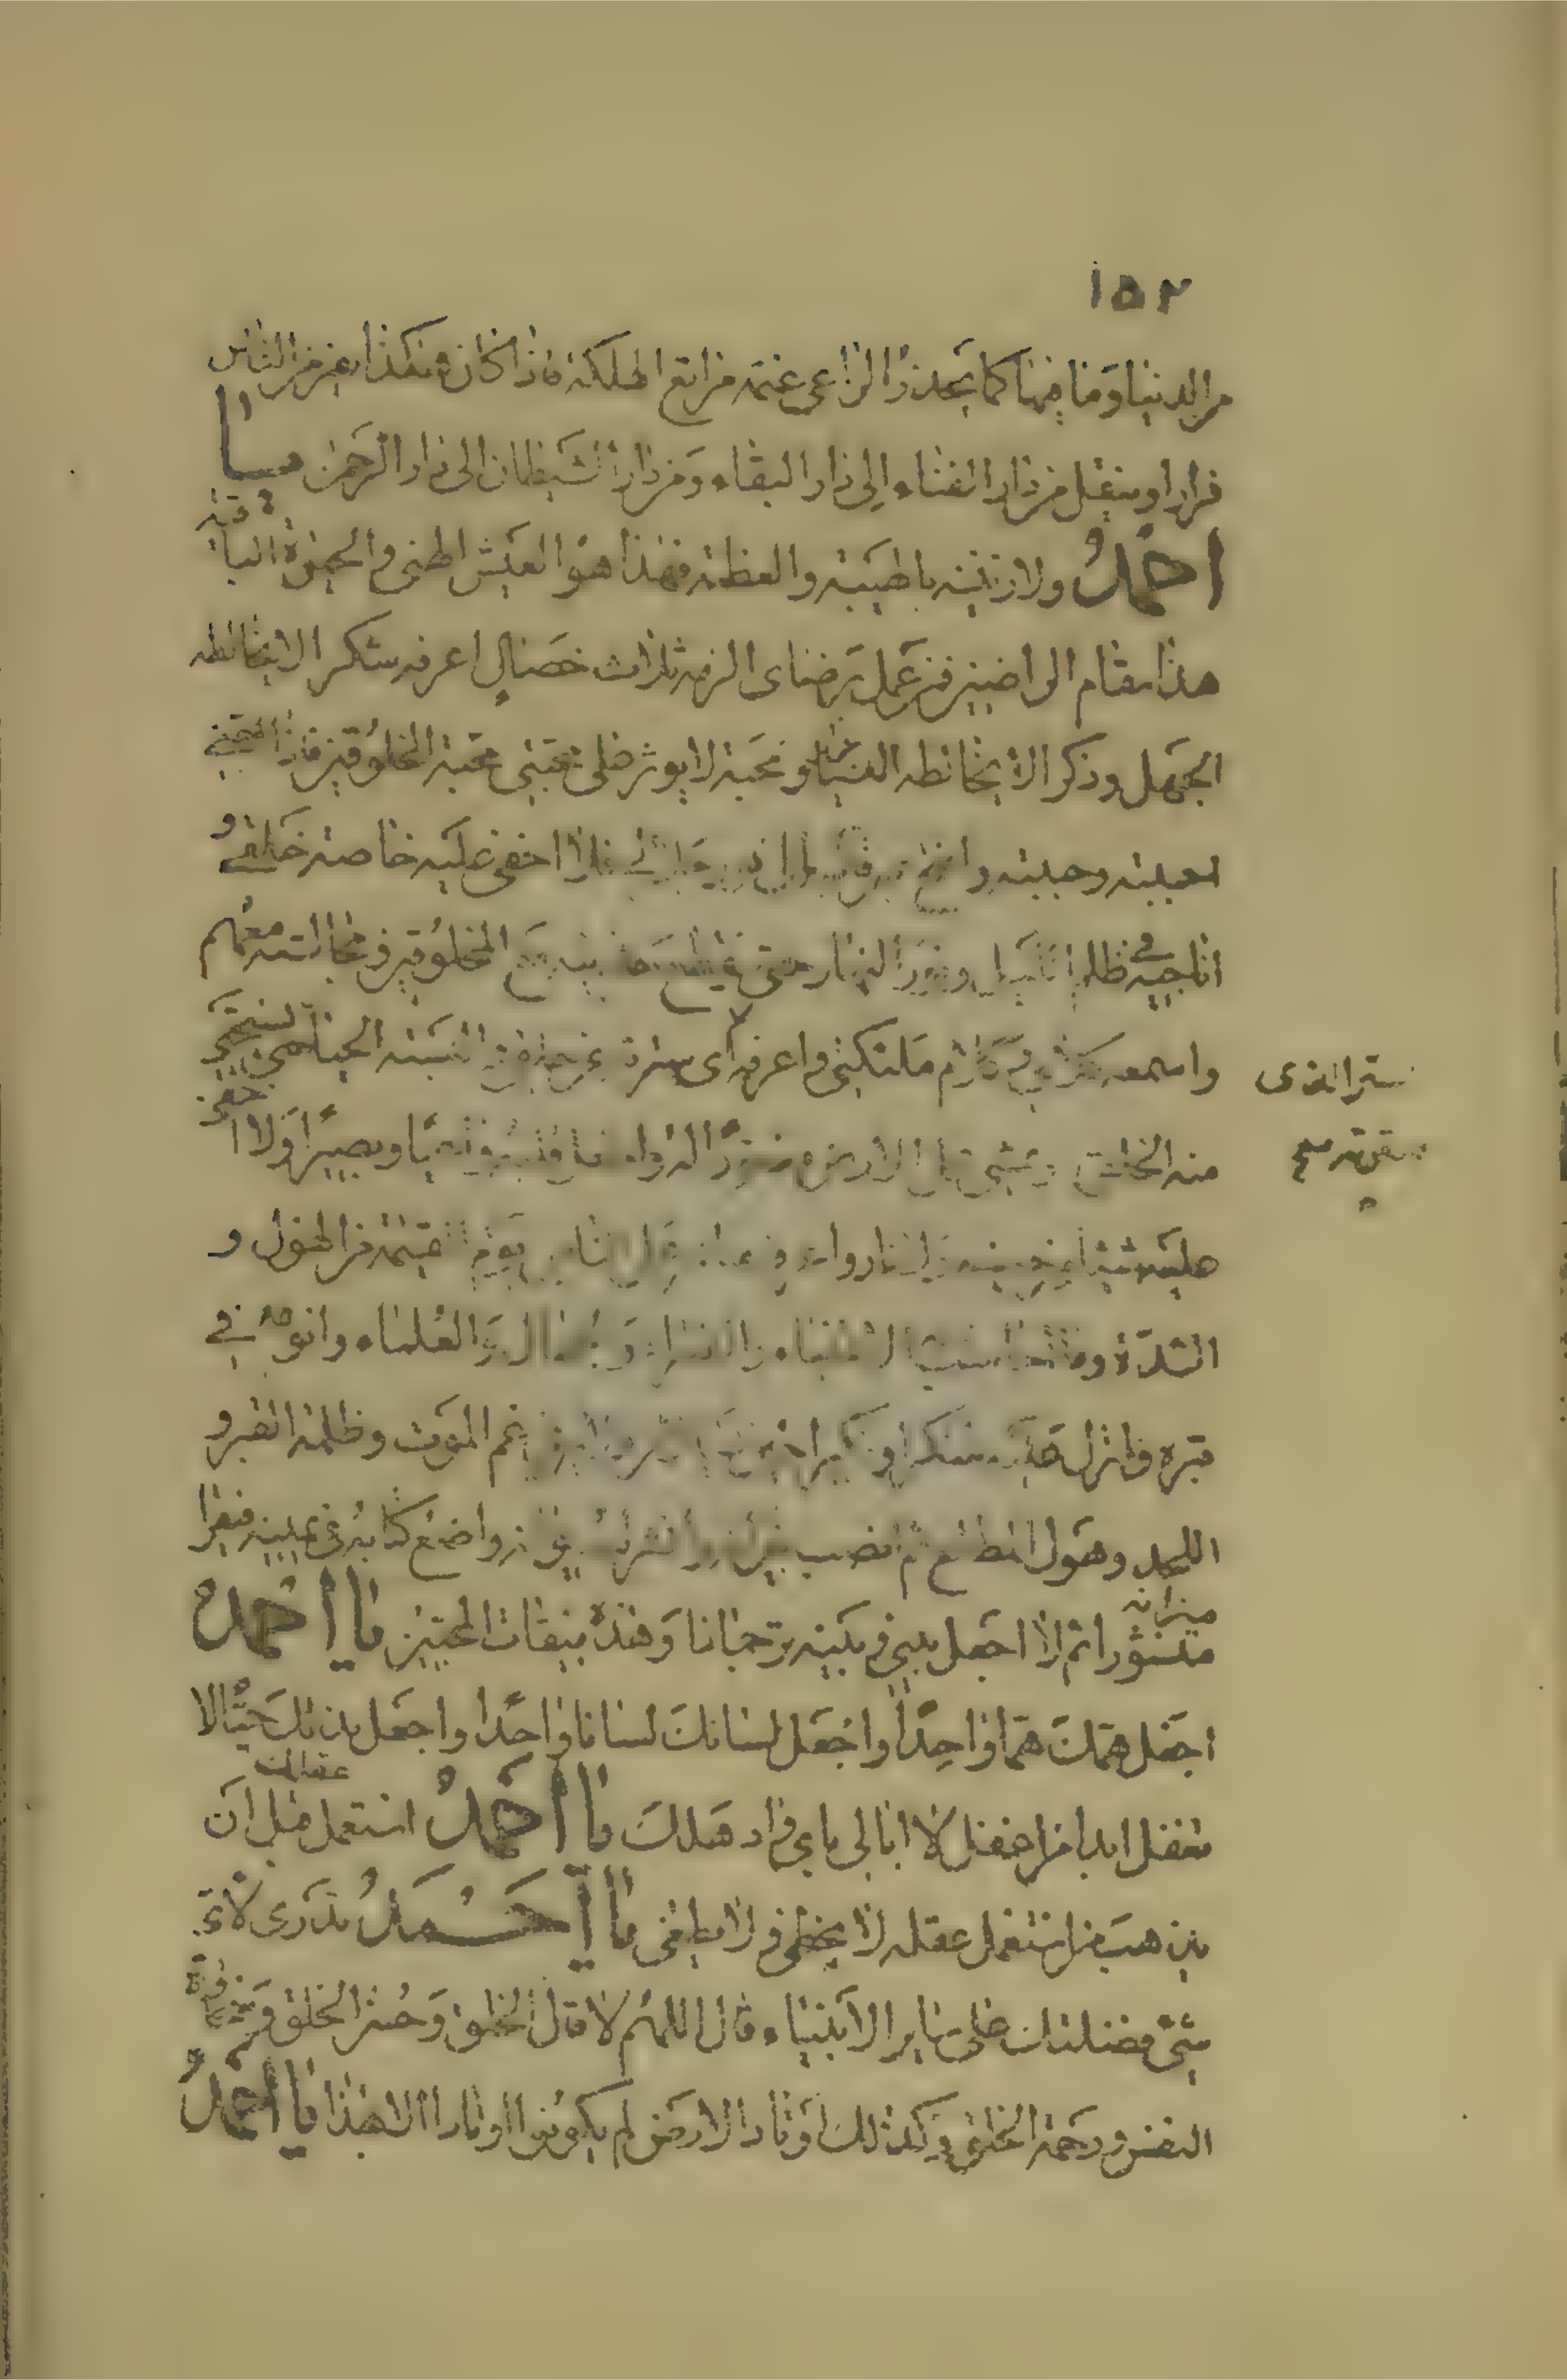 ١٥٢
من الدنيا وما فيها كما يحذر الراعي غنمه من مراتع الهلكة فاذا كان هكذا يفر من الناس
فرارا وينقل من دار الفناء الى دار البقاء ومن دار الشيطان الى دار الرحمن يا
احمد ولازيننه بالهيبة والعظمة فهذا هو العيش الهنئ والحيوة الباقية
هذا مقام الراضين فمن عمل برضاى الزمه ثلاث خصال اعرفه شكرا لا يخالطه
الجهل وذكرا لا يخالطه النسيان ومحبة لا يوثر على محبتي محبة المخلوقين فاذا احبني
احببته وحببته وافتح عين قلبه الى جلالي فلا اخفى عليه خاصة خلقي
اناجيه في ظلم الليل ونور النهار حتى ينقطع حديثه مع المخلوقين ومجالسته معهم
واسمعه كلامي وكلام ملائكتي واعرفه السر الذى سترته عن خلقي والبسه الحيا حتى يستحيي
منه الخلق ويمشي على الارض مغفورا له واجعل قلبه واعيا وبصيرا ولا اخفى
عليه شيئا من جنة ولا نار واعرفه ما يمر على الناس يوم القيمة من الهول و
الشدة وما احاسب الاغنياء والفقراء والجهال والعلماء وانومه في
قبره وانزل عليه منكرا ونكيرا حتى يسئلاه غم الموت وظلمة القبر و
اللحد وهول المطلع ثم انصب ميزانه وانشر ديوانه واضع كتابه في يمينه فيقرا
منشورا ثم لا اجعل بيني وبينه ترجمانا وهذه صفات المحبين يا احمد
اجعل همك هما واحدا واجعل لسانك لسانا واحدا واجعل بدنك حيا لا
تغفل ابدا من غفل لا ابالي باي واد هلك يا احمد استعمل عقلك قبل ان
يذهب من استعمل عقله لا يخطى ولا يطغى يا احمد تدرى لاى
شئ فضلتك على ساير الانبياء قال اللهم لا قال بالخلق وحسن الخلق وسخاوة
النفس ورحمة الخلق وكذلك اوتاد الارض لم يكونوا اوتادا الا بهذا يا احمد